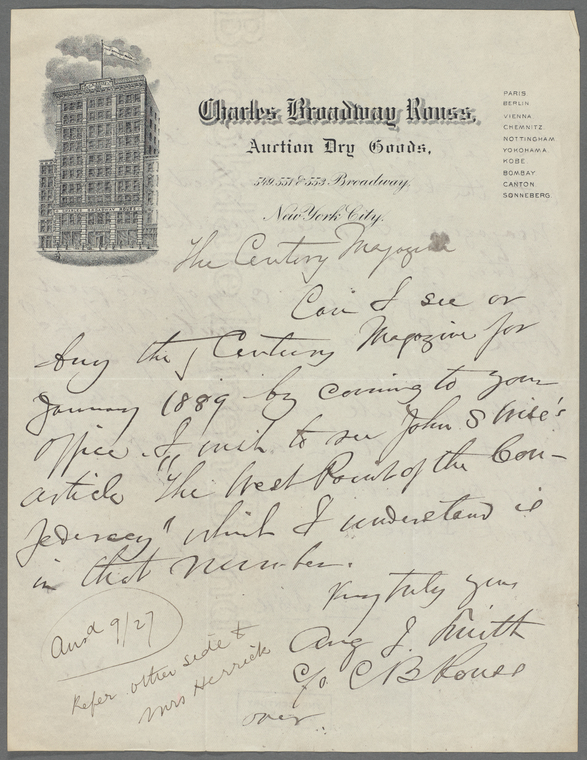 Charles Broadway Rouss.
Auction Dry Goods,
549, 551 & 553 Broadway,
New York City.
PARIS
BERLIN
VIENNA
CHEMNITZ
NOTTINGHAM
YOKOHAMA
KOBE
BOMBAY
CANTON
SONNEBERG
The Century Magazine
Can I see or
buy the Century Magazine for
January 1889 by coming to your
office. I wish to see John S Wise's
article "The West Point of the Con-
federacy" which I understand is
in that number.
Very truly yours
Aug J. Smith
c/o C B Rouss
over
Ansd 9/27
Refer other side to
Mrs Herrick